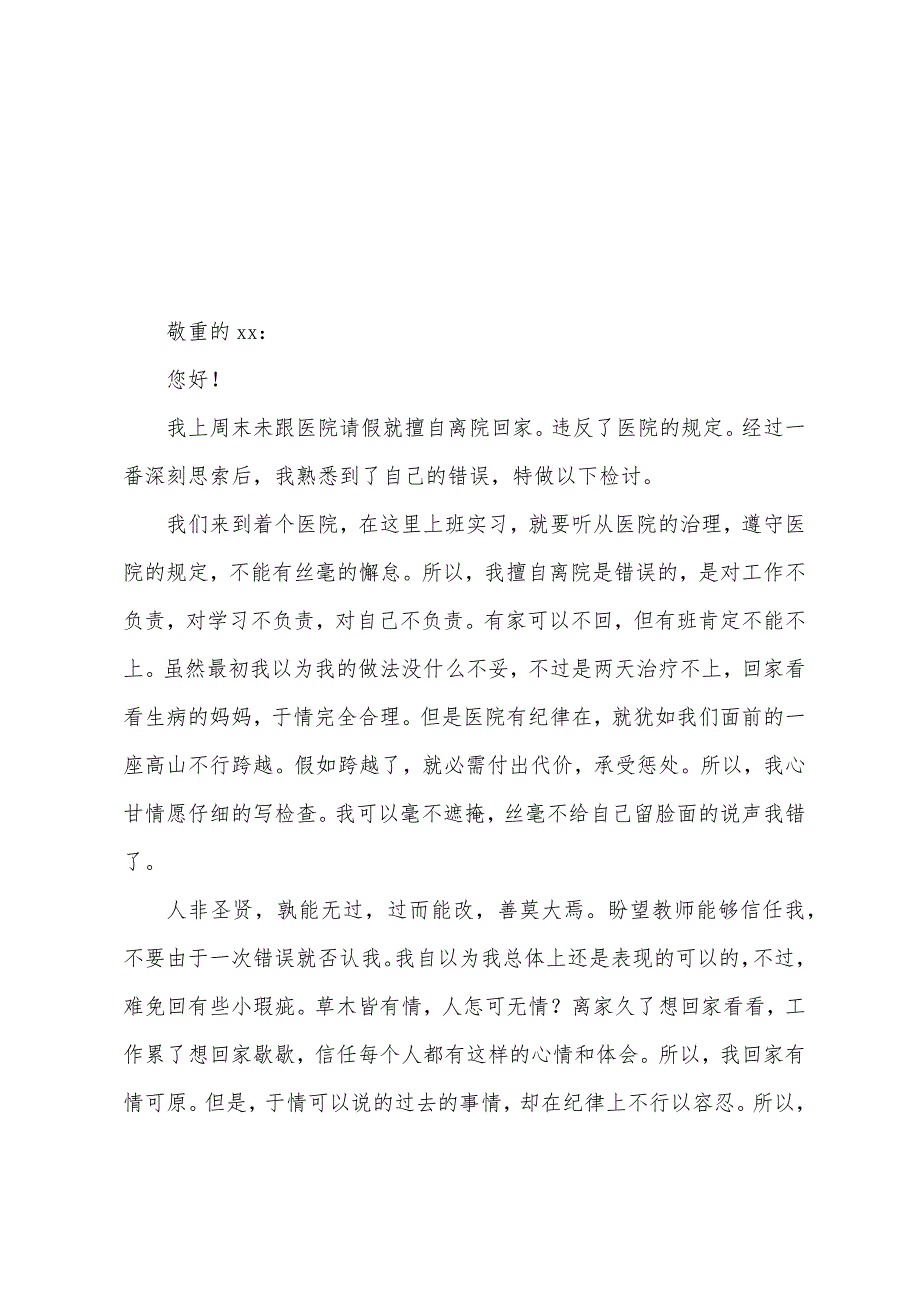 敬重的 xx：
您好！
我上周末未跟医院请假就擅自离院回家。违反了医院的规定。经过一
番深刻思索后，我熟悉到了自己的错误，特做以下检讨。
我们来到着个医院，在这里上班实习，就要听从医院的治理，遵守医
院的规定，不能有丝毫的懈怠。所以，我擅自离院是错误的，是对工作不
负责，对学习不负责，对自己不负责。有家可以不回，但有班肯定不能不
上。虽然最初我以为我的做法没什么不妥，不过是两天治疗不上，回家看
看生病的妈妈，于情完全合理。但是医院有纪律在，就犹如我们面前的一
座高山不行跨越。假如跨越了，就必需付出代价，承受惩处。所以，我心
甘情愿仔细的写检查。我可以毫不遮掩，丝毫不给自己留脸面的说声我错
了。
人非圣贤，孰能无过，过而能改，善莫大焉。盼望教师能够信任我，
不要由于一次错误就否认我。我自以为我总体上还是表现的可以的，不过，
难免回有些小瑕疵。草木皆有情，人怎可无情？离家久了想回家看看，工
作累了想回家歇歇，信任每个人都有这样的心情和体会。所以，我回家有
情可原。但是，于情可以说的过去的事情，却在纪律上不行以容忍。所以，